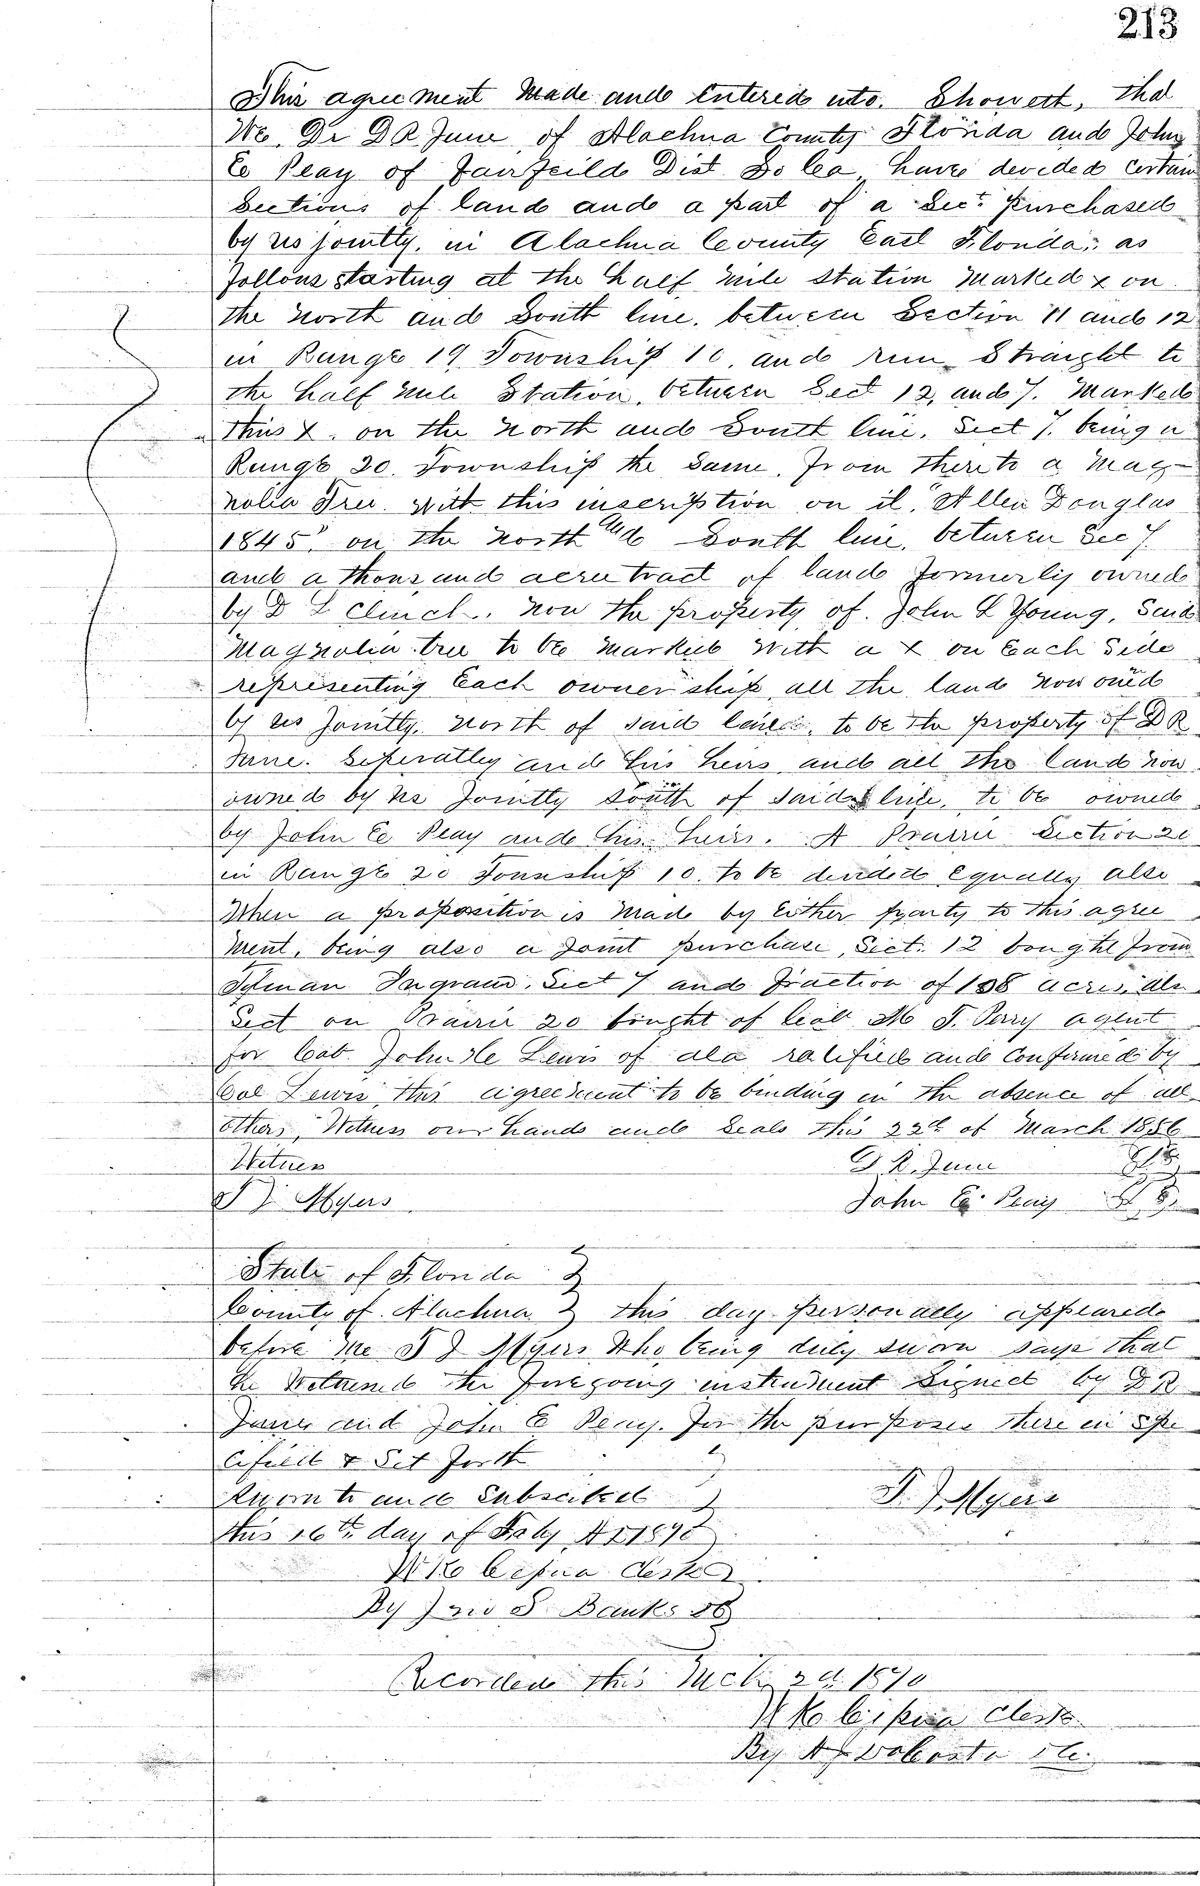 213
This agreement Made and entered into. Showeth, that
We, Dr D R June, of Alachua County Florida and John
E Peay of Fairfeild Dist So Ca, have devided certain
Sections of land and a part of a Sect purchased
by us jointly. in Alachua County East Florida, as
follows starting at the half mile station Marked x on
the North and South line, between Section 11 and 12
in Range 19 Township 10, and run Straight to
the half mile Station, between Sect 12, and 7. Marked
thus X, on the North and South line, Sect 7, being in
Range 20. Township the same, from there to a Mag-
nolia Tree with this inscription on it, "Allen Douglas
1845" on the North and South line, between Sec 7
and a thousand acree tract of land formerly owned
by D L Clinch. now the property of John L Young, Said
Magnolia tree to be Marked with a X on Each Side
representing Each ownership, all the land now owned
by us Jointly, North of said line, to be the property of D R
June. Seperatley and his heirs, and all the land now
owned by us Jointly South of said line, to be owned
by John E Peay and his heirs. A Prairie Section 20
in Range 20 Township 10. to be divided Equally also
When a proposition is Made by Either party to this agree
ment, being also a Joint purchase, Sect. 12 bought from
Tilman Ingram, Sect 7 and fraction of 108 acres, also
Sect on Prairie 20 bought of M T. Perry agent
for John Lewis of Ala ratified and Confirmed by
Col Lewis, this agreement to be binding in the absence of all
others, Witness our hands and Seals this 22d of March 1856
Witness D R. June L S
T J Myers John E. Peay L S
State of Florida }
County of Alachua } this day personally appeared
before Me T J Myers Who, being duly sworn says that
he Witnessed the foregoing instrument Signed by D R
June and John E Peay. for the purposes there in spe
cified & Set forth
Sworn to and Subscribed } T. J. Myers
this 16th day of Feby AD 1870
W K Cessna Clerk
By Jno S Banks DC
Recorded this Mch 2d 1870
W K Cessna Clerk
By A J DaCosta DC.